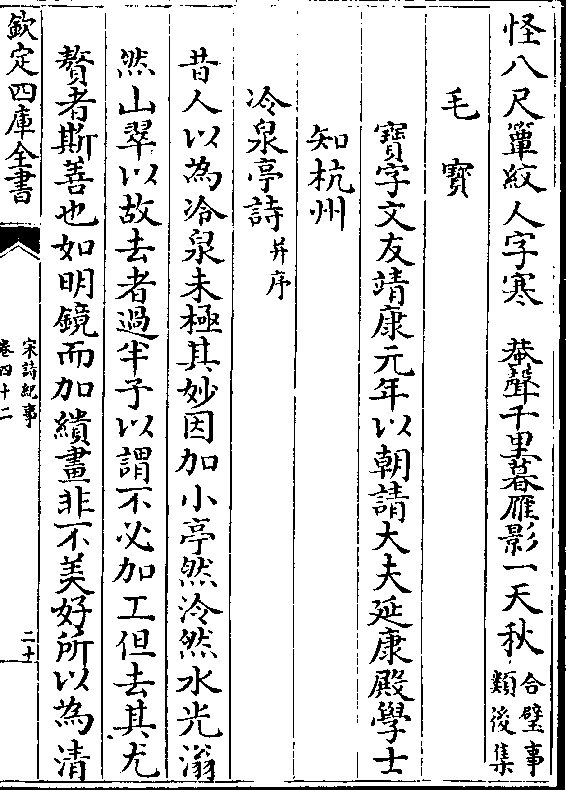 怪八尺簟紋人字寒　菴聲千里暮雁影一天秋合璧事類後集
毛寳
寳字文友靖康元年以朝請大夫延康殿學士
知杭州
冷泉亭詩并序
昔人以為冷泉未極其妙因加小亭然泠然水光滃
然山翠以故去者過半予以謂不必加工但去其尤
贅者斯善也如明鏡而加繢畫非不美好所以為清
欽定四庫全書
宋詩紀事
卷四十二
二十